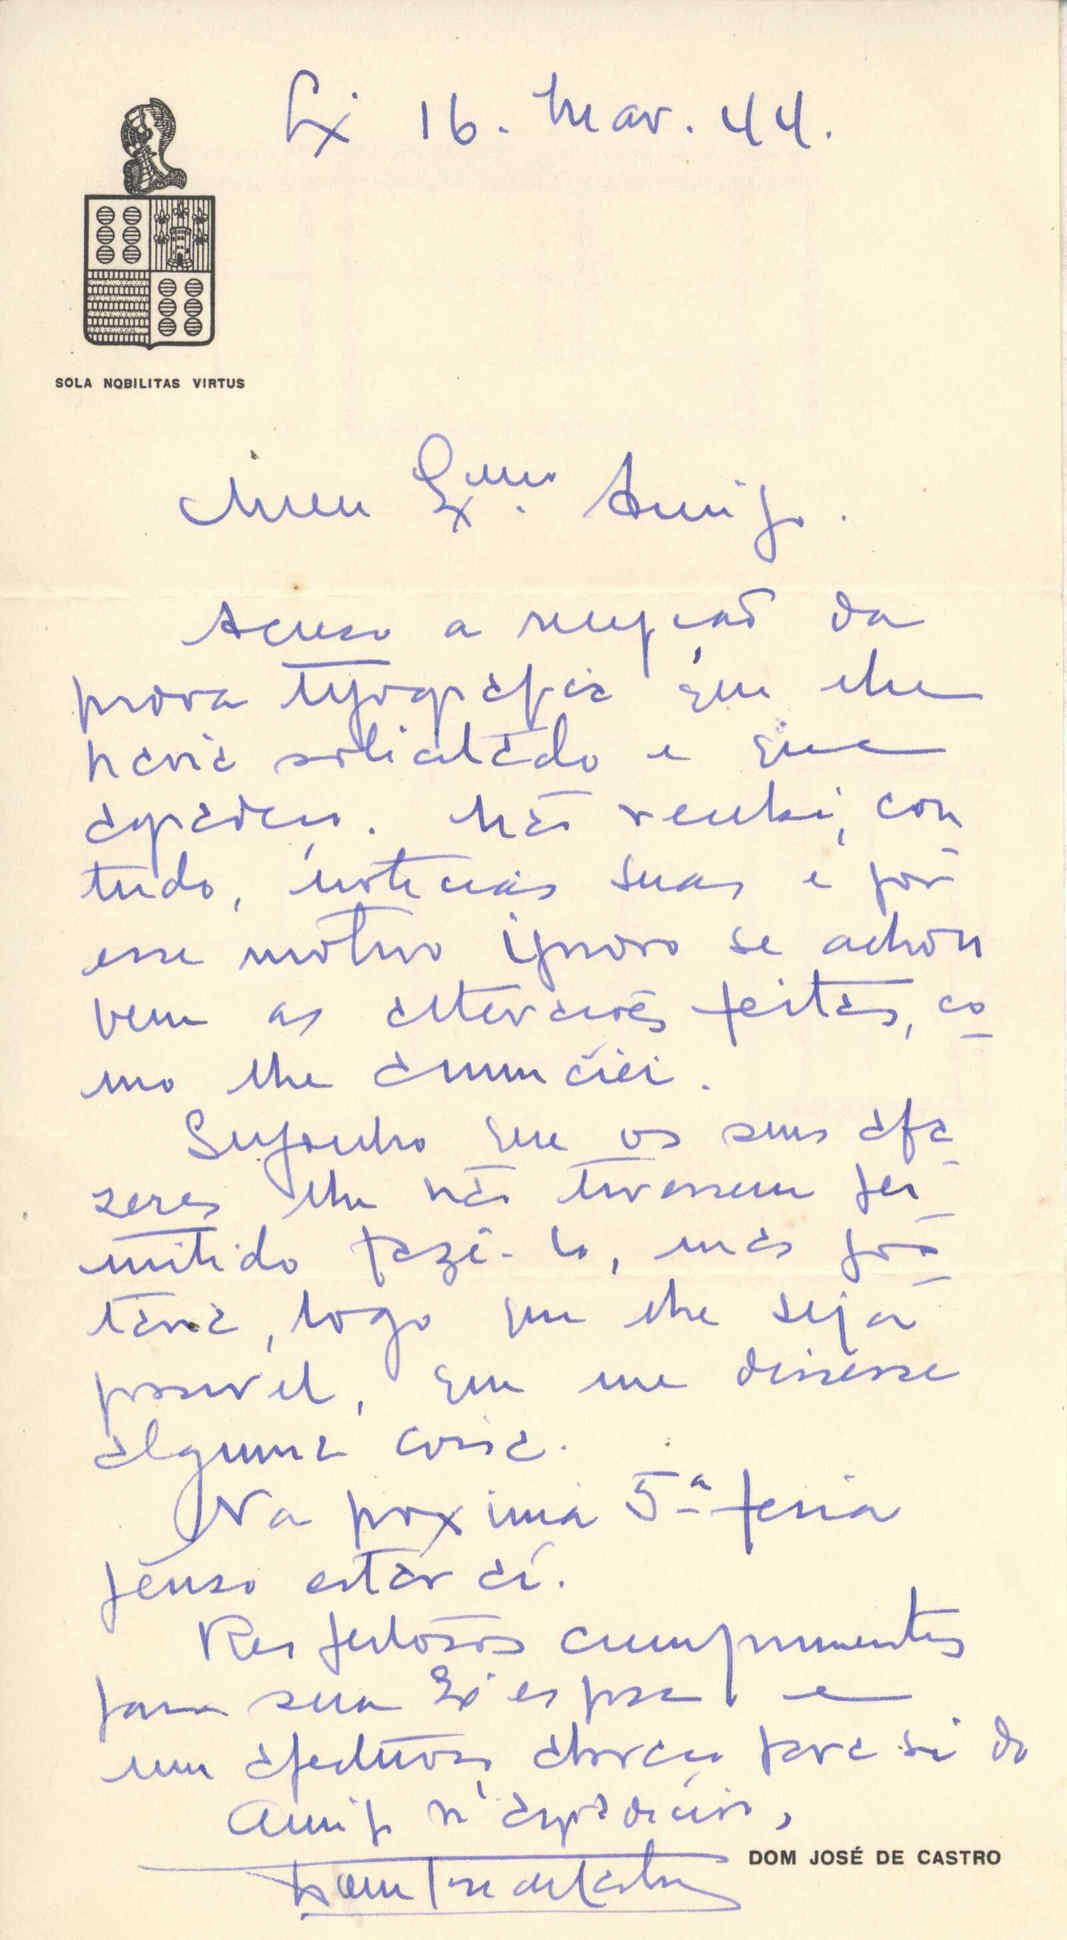 Lx 16. Mar. 44.
SOLA NOBILITAS VIRTUS
Meu Exmo. Amigo.
Acuso a recepção da
prova tipográfica que lhe
havia solicitado e que
agradeço. Não recebi, con
tudo, notícias suas e por
esse motivo ignoro se achou
bem as alterações feitas, co
mo lhe anunciei.
Suponho que os seus afa
zeres lhe não tivessem per
mitido fazê-lo, mas gos
taria, logo que lhe seja
possível, que me dissesse
alguma coisa.
Na proxima 5ª feira
penso estar aí.
Respeitosos cumprimentos
para sua Exª esposa e
um afectuoso abraço para si do
amigo mº agradecido,
Dom José de Castro
DOM JOSÉ DE CASTRO